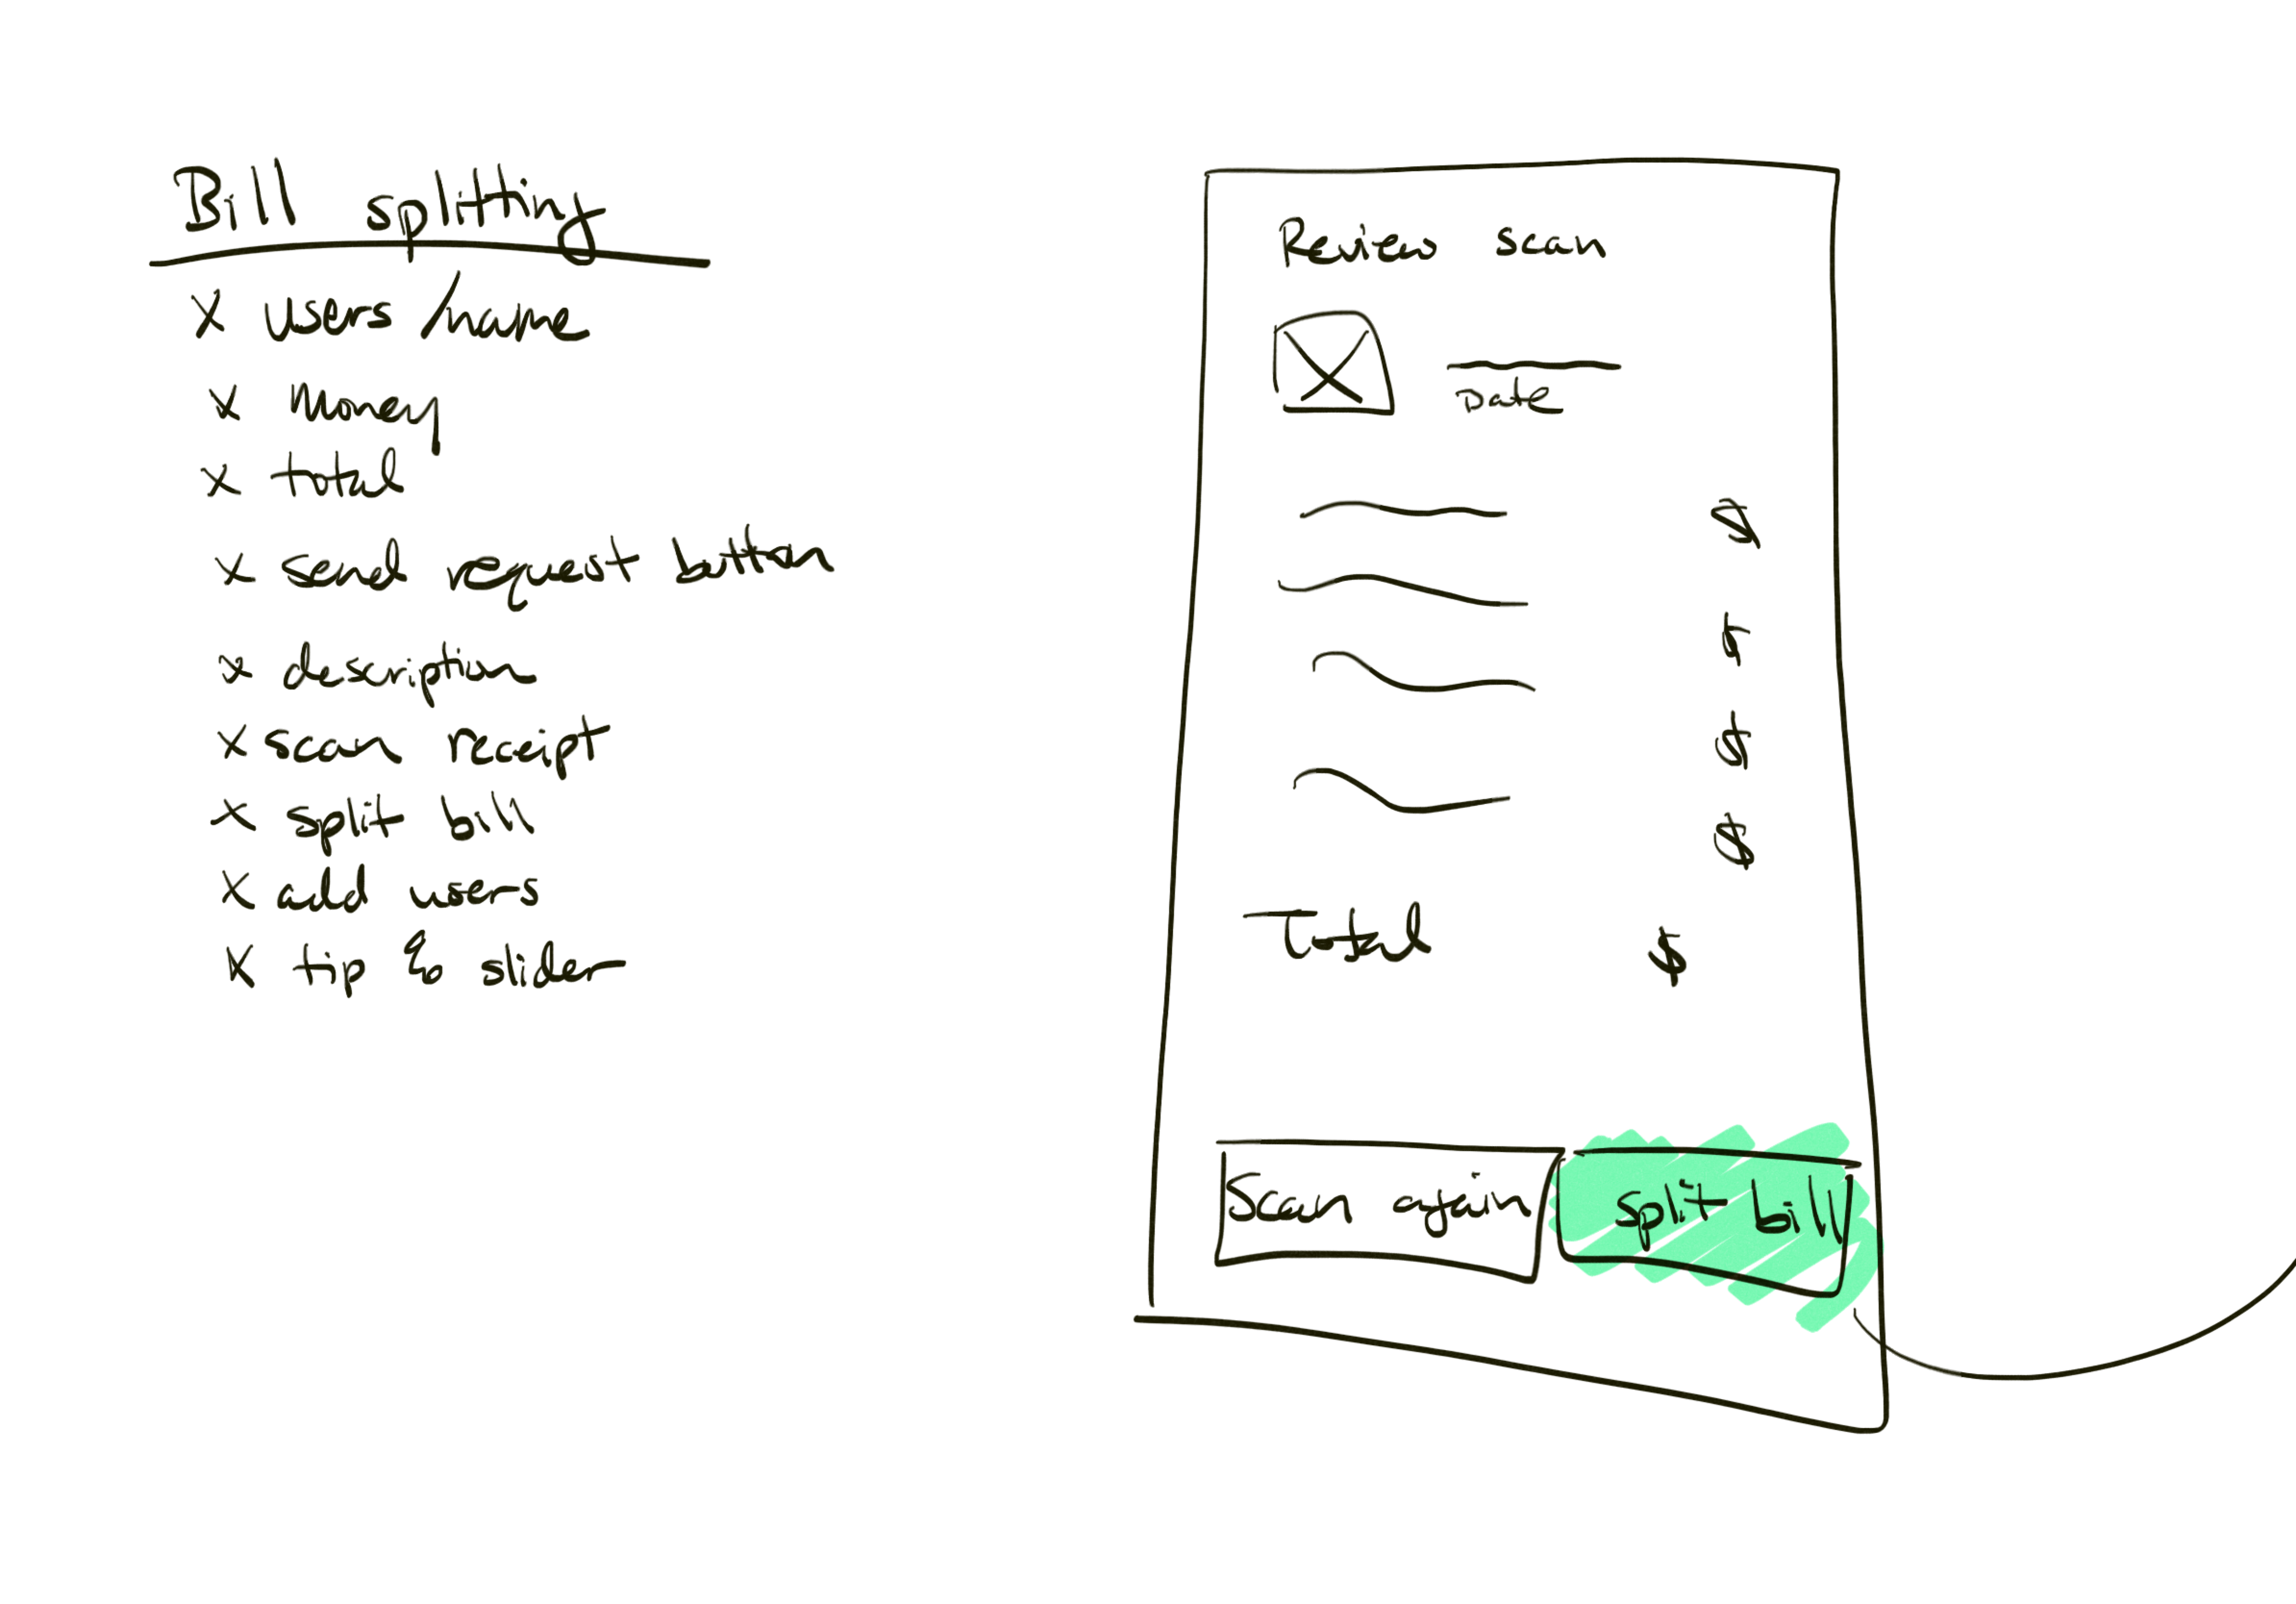 Bill splitting
x users/name
x money
x total
x send request button
x description
x scan receipt
x split bill
x add users
x tip % slider
Review scan
Date
$
$
$
$
Total $
Scan again
split bill